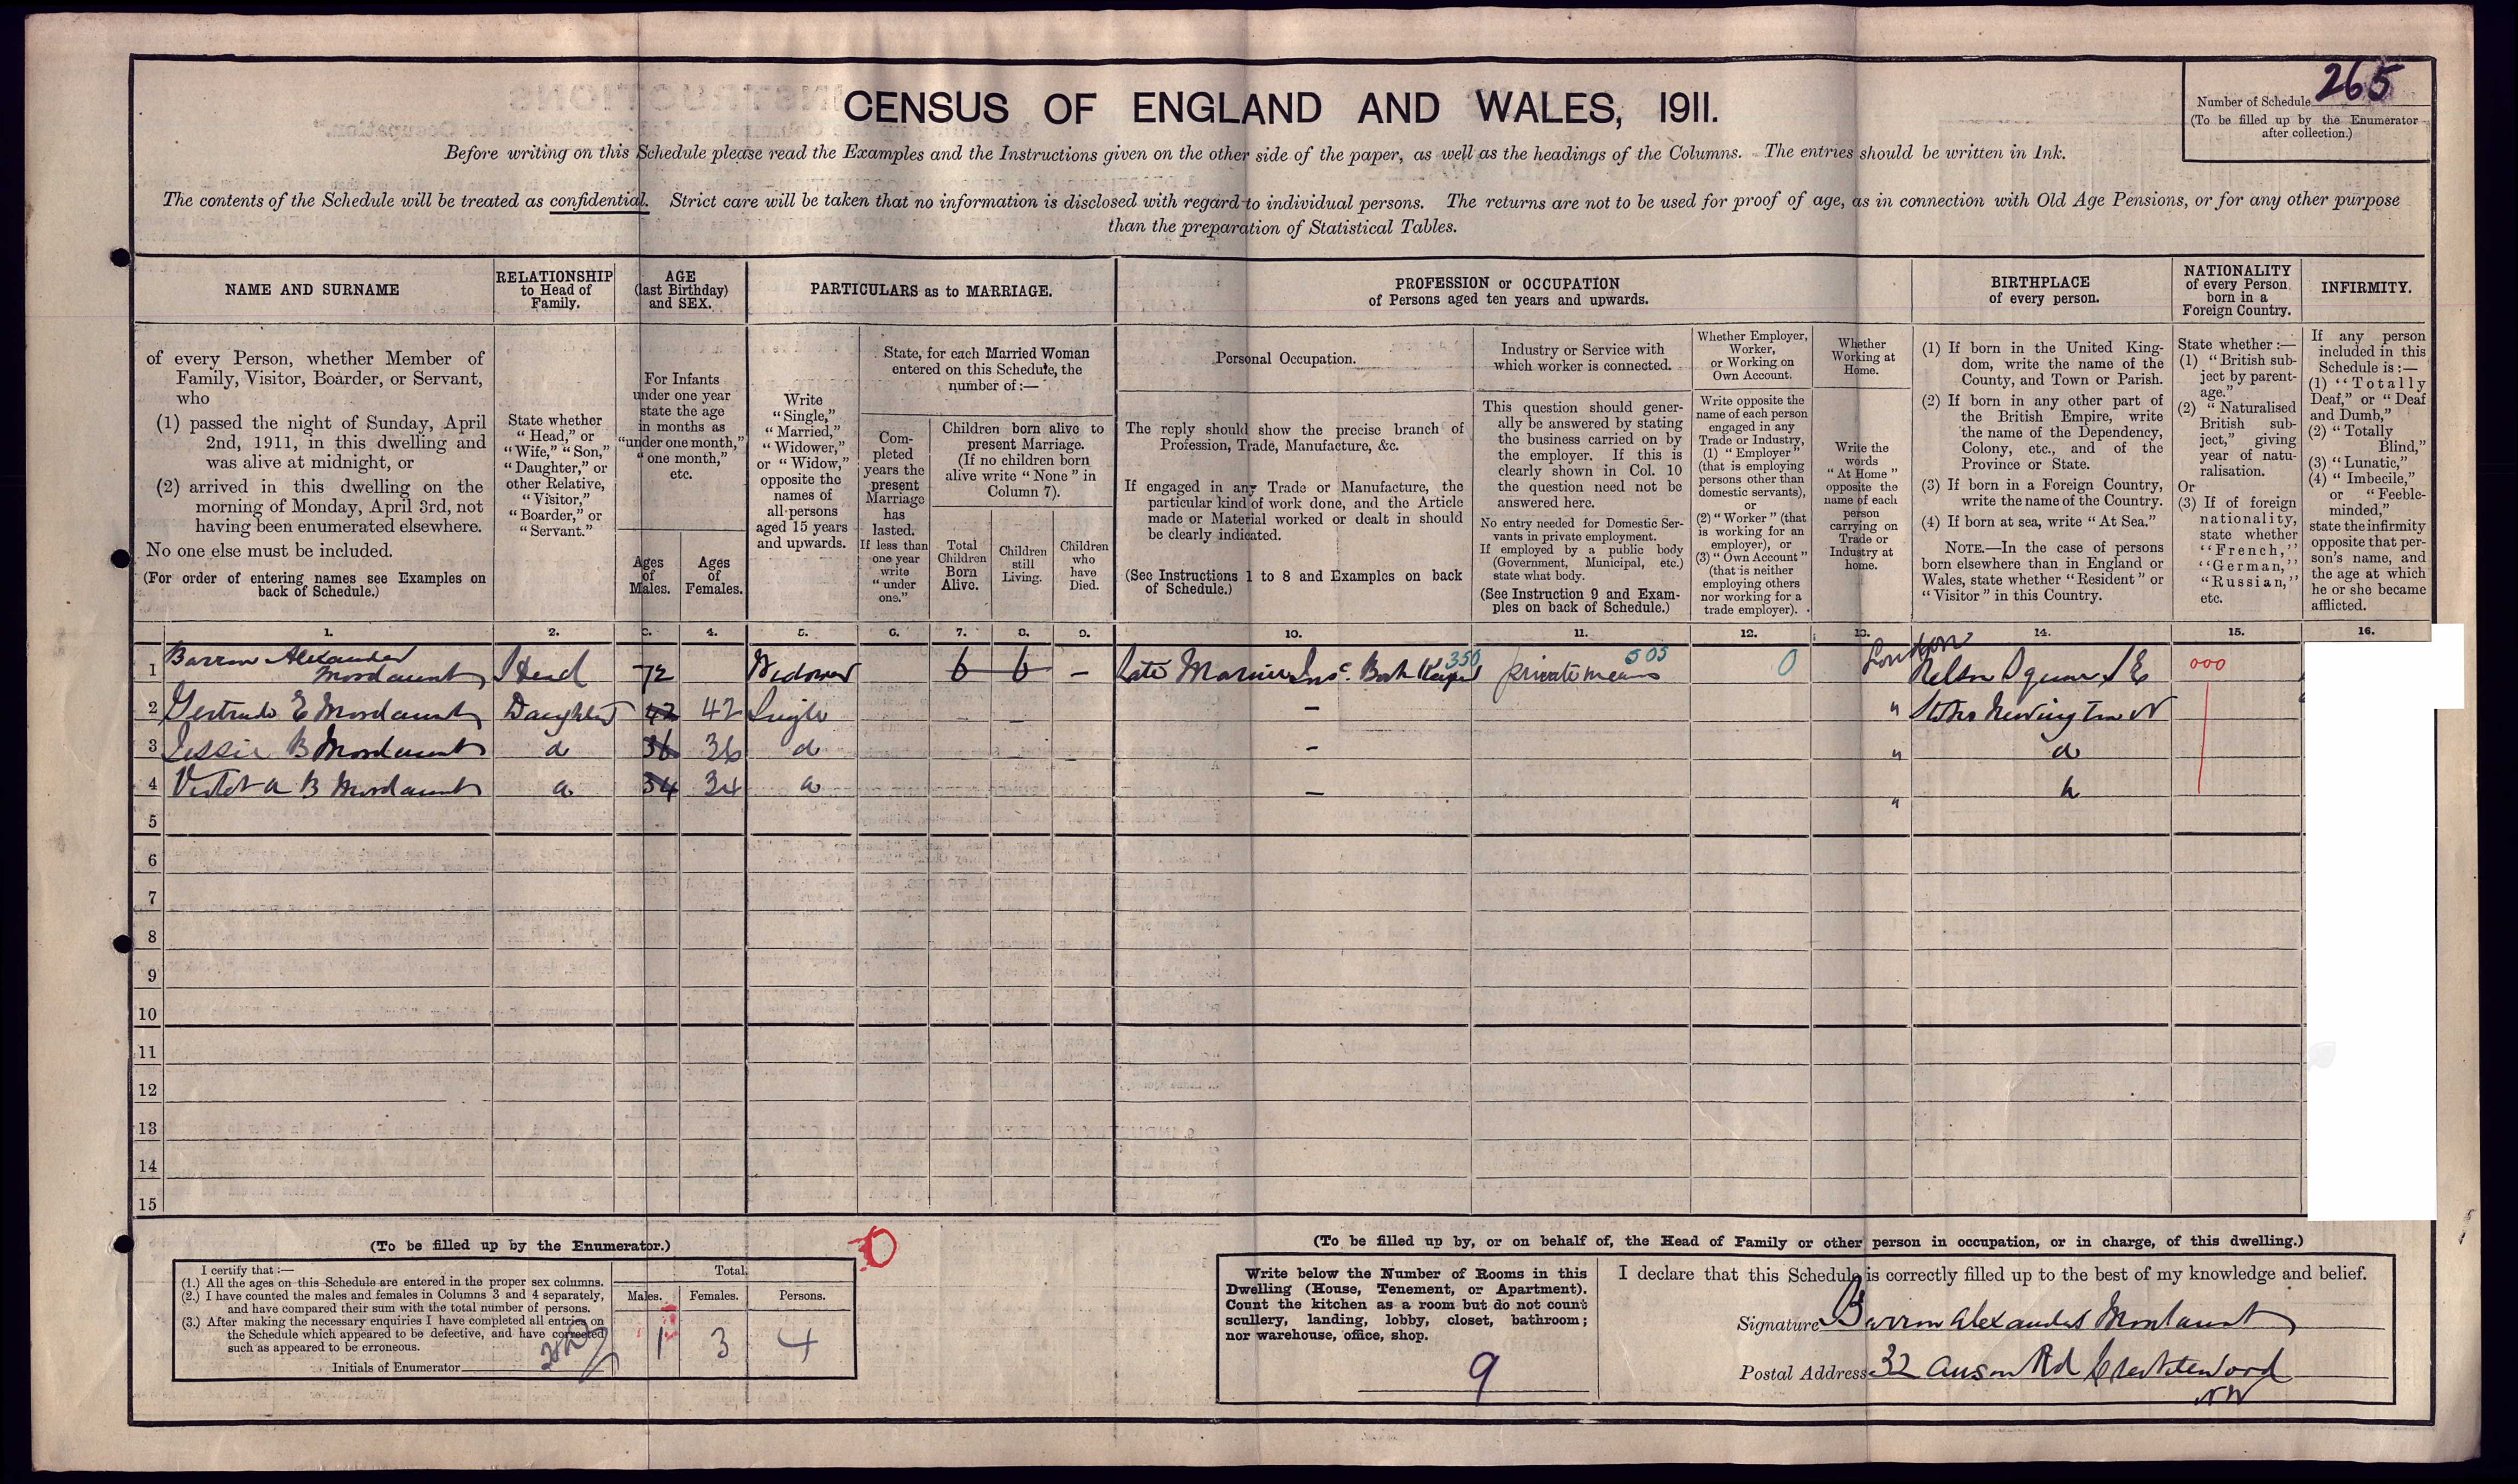 CENSUS OF ENGLAND AND WALES, 1911.
Number of Schedule 265
(To be filled up by the Enumerator after collection.)
Before writing on this Schedule please read the Examples and the Instructions given on the other side of the paper, as well as the headings of the Columns. The entries should be written in Ink.
The contents of the Schedule will be treated as confidential. Strict care will be taken that no information is disclosed with regard to individual persons. The returns are not to be used for proof of age, as in connection with Old Age Pensions, or for any other purpose
than the preparation of Statistical Tables.
NAME AND SURNAME
of every Person, whether Member of
Family, Visitor, Boarder, or Servant,
who
(1) passed the night of Sunday, April
2nd, 1911, in this dwelling and
was alive at midnight, or
(2) arrived in this dwelling on the
morning of Monday, April 3rd, not
having been enumerated elsewhere.
No one else must be included.
(For order of entering names see Examples on
back of Schedule.)
RELATIONSHIP
to Head of
Family.
State whether
"Head," or
"Wife," "Son,"
"Daughter," or
other Relative,
"Visitor,"
"Boarder," or
"Servant."
AGE
(last Birthday)
and SEX.
For Infants
under one year
state the age
in months as
"under one month,"
"one month,"
etc.
Ages
of
Males.
Ages
of
Females.
PARTICULARS as to MARRIAGE.
Write
"Single,"
"Married,"
"Widower,"
or "Widow,"
opposite the
names of
all persons
aged 15 years
and upwards.
State, for each Married Woman
entered on this Schedule, the
number of:—
Com-
pleted
years the
present
Marriage
has
lasted.
If less than
one year
write
"under
one."
Children born alive to
present Marriage.
(If no children born
alive write "None" in
Column 7).
Total
Children
Born
Alive.
Children
still
Living.
Children
who
have
Died.
PROFESSION or OCCUPATION
of Persons aged ten years and upwards.
Personal Occupation.
The reply should show the precise branch of
Profession, Trade, Manufacture, &c.
If engaged in any Trade or Manufacture, the
particular kind of work done, and the Article
made or Material worked or dealt in should
be clearly indicated.
(See Instructions 1 to 8 and Examples on back
of Schedule.)
Industry or Service with
which worker is connected.
This question should gener-
ally be answered by stating
the business carried on by
the employer. If this is
clearly shown in Col. 10
the question need not be
answered here.
No entry needed for Domestic Ser-
vants in private employment.
If employed by a public body
(Government, Municipal, etc.)
state what body.
(See Instruction 9 and Exam-
ples on back of Schedule.)
Whether Employer,
Worker,
or Working on
Own Account.
Write opposite the
name of each person
engaged in any
Trade or Industry,
(1) "Employer"
(that is employing
persons other than
domestic servants),
or
(2) "Worker" (that
is working for an
employer), or
(3) "Own Account"
(that is neither
employing others
nor working for a
trade employer).
Whether
Working at
Home.
Write the
words
"At Home"
opposite the
name of each
person
carrying on
Trade or
Industry at
home.
BIRTHPLACE
of every person.
(1) If born in the United King-
dom, write the name of the
County, and Town or Parish.
(2) If born in any other part of
the British Empire, write
the name of the Dependency,
Colony, etc., and of the
Province or State.
(3) If born in a Foreign Country,
write the name of the Country.
(4) If born at sea, write "At Sea."
NOTE.—In the case of persons
born elsewhere than in England or
Wales, state whether "Resident" or
"Visitor" in this Country.
NATIONALITY
of every Person
born in a
Foreign Country.
State whether :—
(1) "British sub-
ject by parent-
age."
(2) "Naturalised
British sub-
ject," giving
year of natu-
ralisation.
Or
(3) If of foreign
nationality,
state whether
"French,"
"German,"
"Russian,"
etc.
INFIRMITY.
If any person
included in this
Schedule is:—
(1) "Totally
Deaf," or "Deaf
and Dumb,"
(2) "Totally
Blind,"
(3) "Lunatic,"
(4) "Imbecile,"
or "Feeble-
minded,"
state the infirmity
opposite that per-
son's name, and
the age at which
he or she became
afflicted.
1. 2. 3. 4. 5. 6. 7. 8. 9. 10. 11. 12. 13. 14. 15. 16.
1 Barron Alexander Mordaunt Head 72 Widower 6 6 – Late Marine Insce Book Keeper 350 private means 505 0 London Nelson Square S E 000
2 Gertrude E Mordaunt Daughter 42 42 Single – " Stoke Newington N
3 Jessie B Mordaunt do 36 36 do – " do
4 Violet A B Mordaunt do 34 34 do – "
5
6
7
8
9
10
11
12
13
14
15
(To be filled up by the Enumerator.)
I certify that :—
(1.) All the ages on this Schedule are entered in the proper sex columns.
(2.) I have counted the males and females in Columns 3 and 4 separately,
and have compared their sum with the total number of persons.
(3.) After making the necessary enquiries I have completed all entries on
the Schedule which appeared to be defective, and have corrected
such as appeared to be erroneous.
Initials of Enumerator
Total.
Males. Females. Persons.
1 3 4
(To be filled up by, or on behalf of, the Head of Family or other person in occupation, or in charge, of this dwelling.)
Write below the Number of Rooms in this
Dwelling (House, Tenement, or Apartment).
Count the kitchen as a room but do not count
scullery, landing, lobby, closet, bathroom;
nor warehouse, office, shop.
9
I declare that this Schedule is correctly filled up to the best of my knowledge and belief.
Signature Barron Alexander Mordaunt
Postal Address 32 Anson Rd Cricklewood
NW